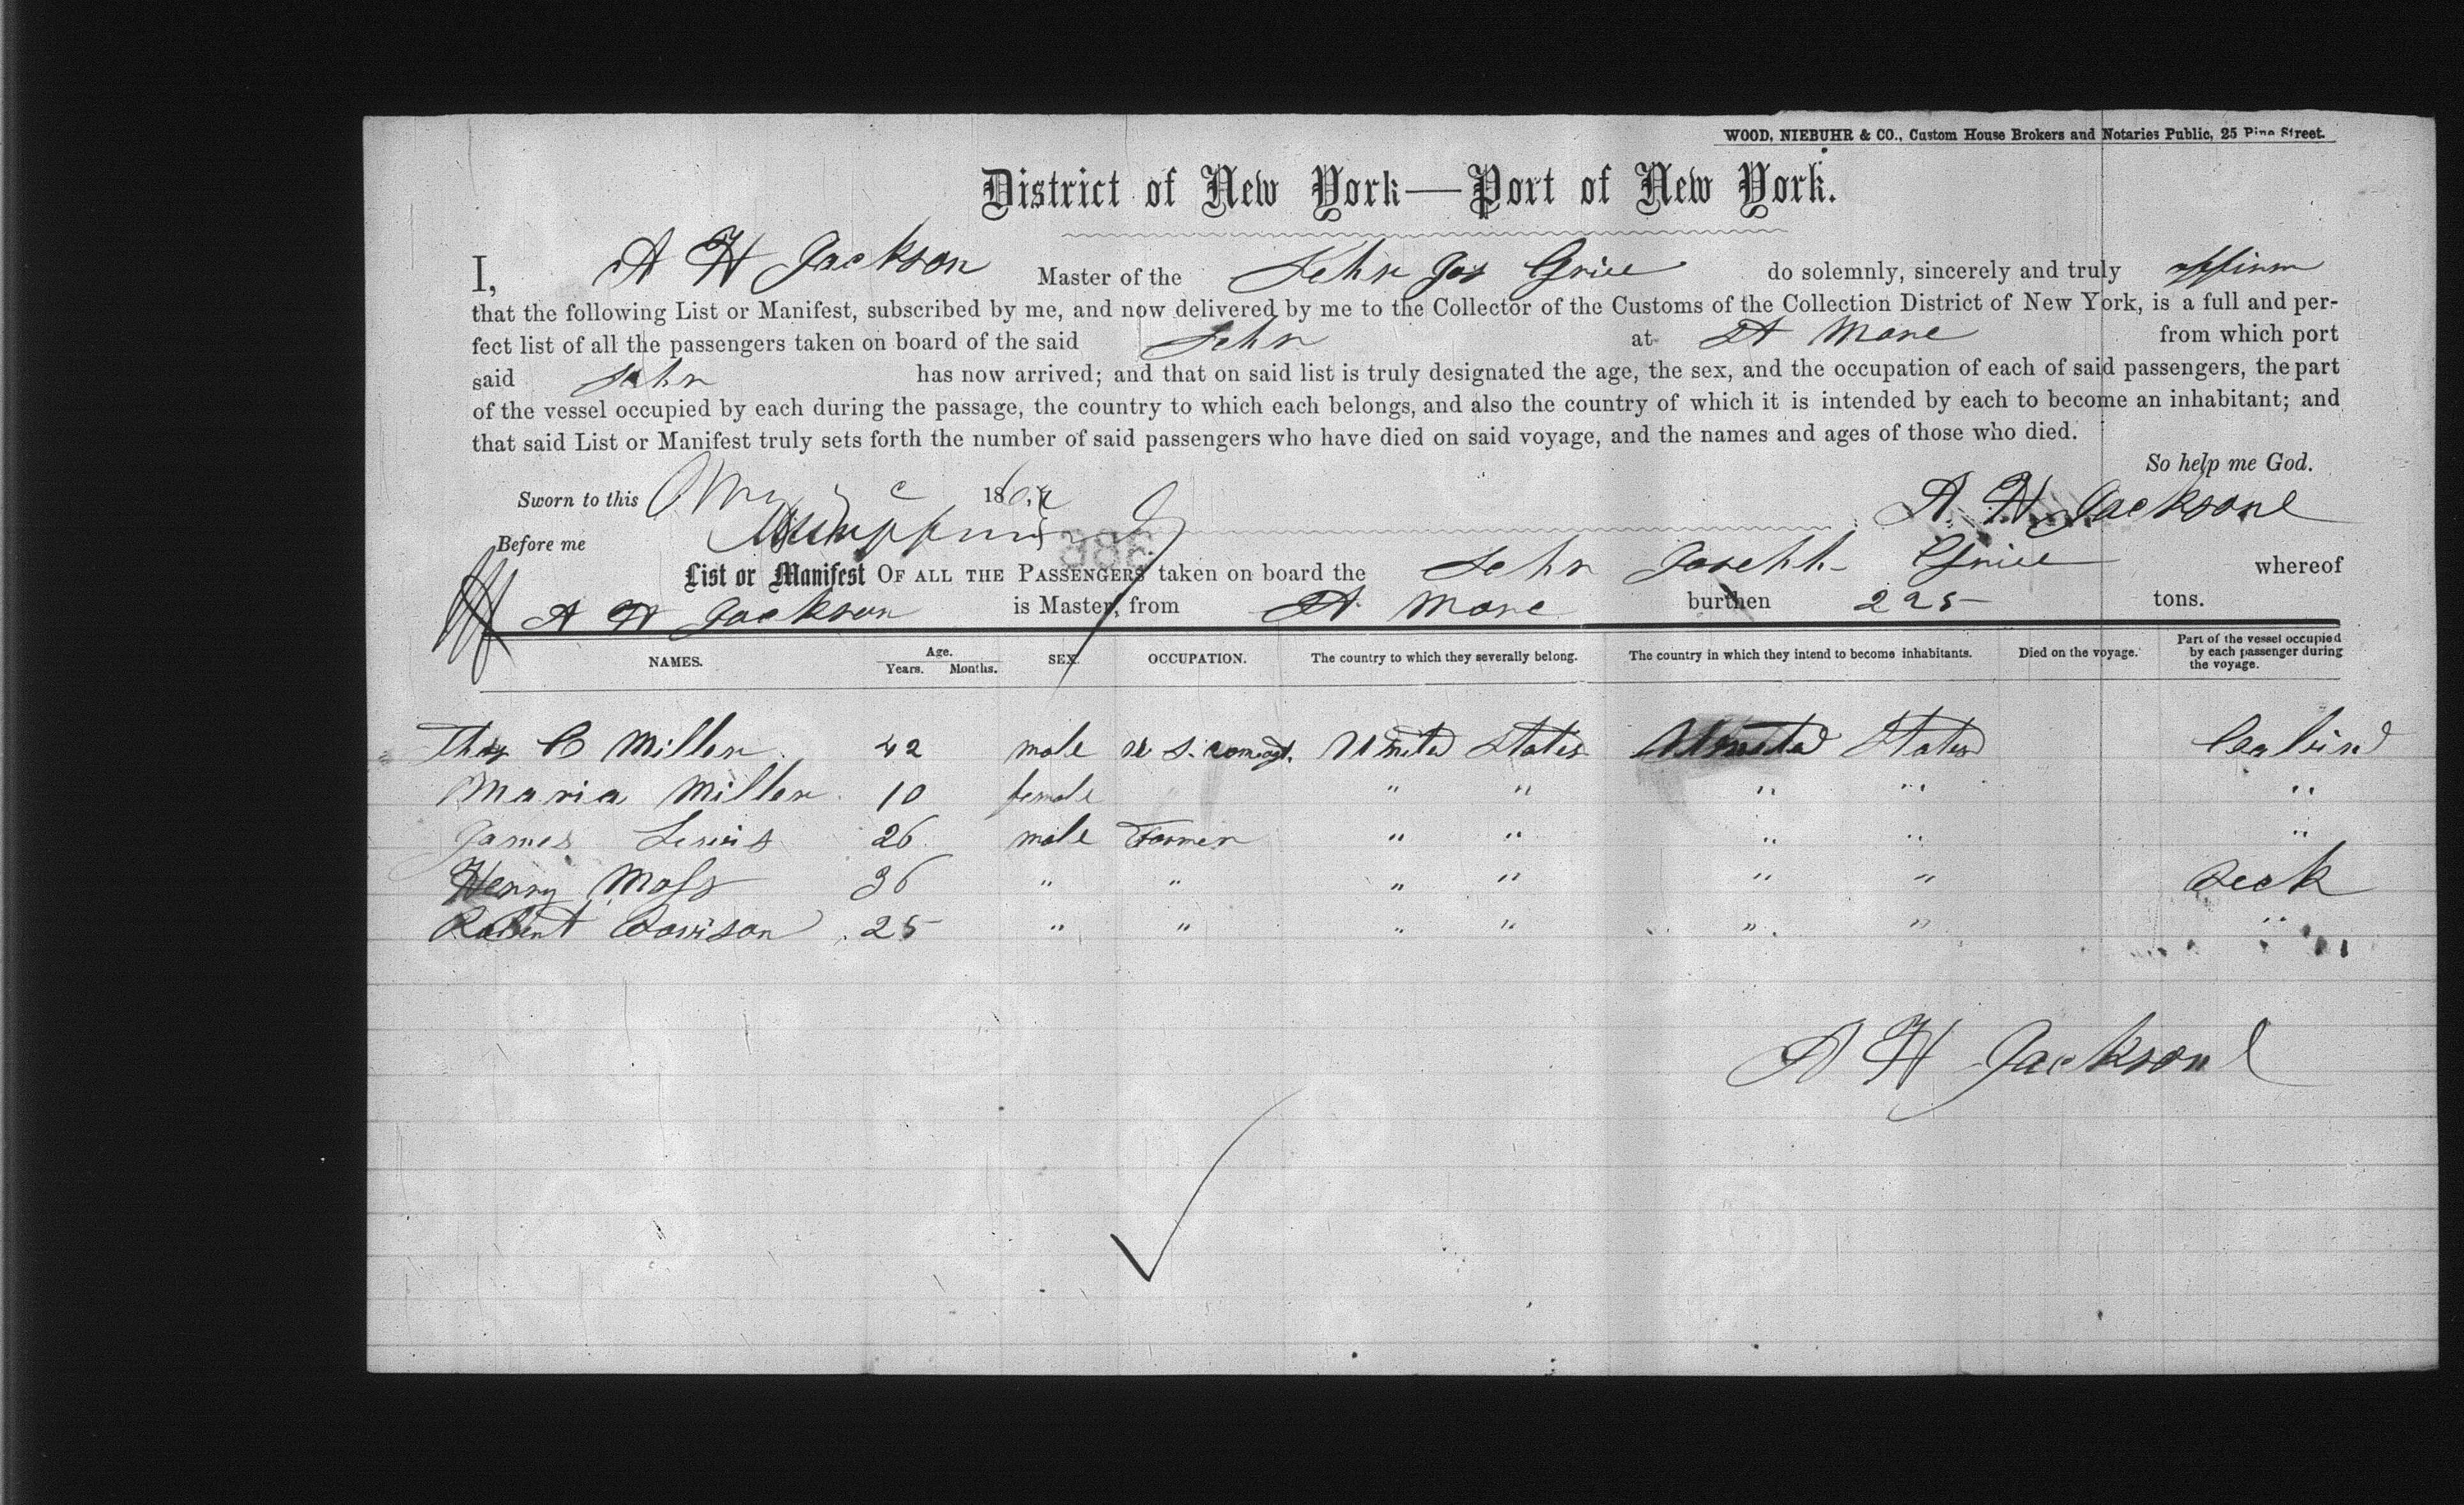 WOOD, NIEBUHR & CO., Custom House Brokers and Notaries Public, 25 Pine Street.
District of New York—Port of New York.
I, A H Jackson Master of the Schr Jos Grice do solemnly, sincerely and truly affirm
that the following List or Manifest, subscribed by me, and now delivered by me to the Collector of the Customs of the Collection District of New York, is a full and per-
fect list of all the passengers taken on board of the said Schr at St Marc from which port
said Schr has now arrived; and that on said list is truly designated the age, the sex, and the occupation of each of said passengers, the part
of the vessel occupied by each during the passage, the country to which each belongs, and also the country of which it is intended by each to become an inhabitant; and
that said List or Manifest truly sets forth the number of said passengers who have died on said voyage, and the names and ages of those who died.
So help me God.
Sworn to this 186
A. H. Jackson
Before me
386
List or Manifest OF ALL THE PASSENGERS taken on board the Schr Joseph Grice whereof
A H Jackson is Master, from St Marc burthen 225 tons.
NAMES. Age. Years. Months. SEX. OCCUPATION. The country to which they severally belong. The country in which they intend to become inhabitants. Died on the voyage. Part of the vessel occupied by each passenger during the voyage.
Thos C Miller 42 male U S. United States United States Cabin
Maria Miller 10 female " " " " "
James Lewis 26 male Farmer " " " " "
Henry Moss 36 " " " " " " Deck
Robert Davison 25 " " " " " " "
A H Jackson